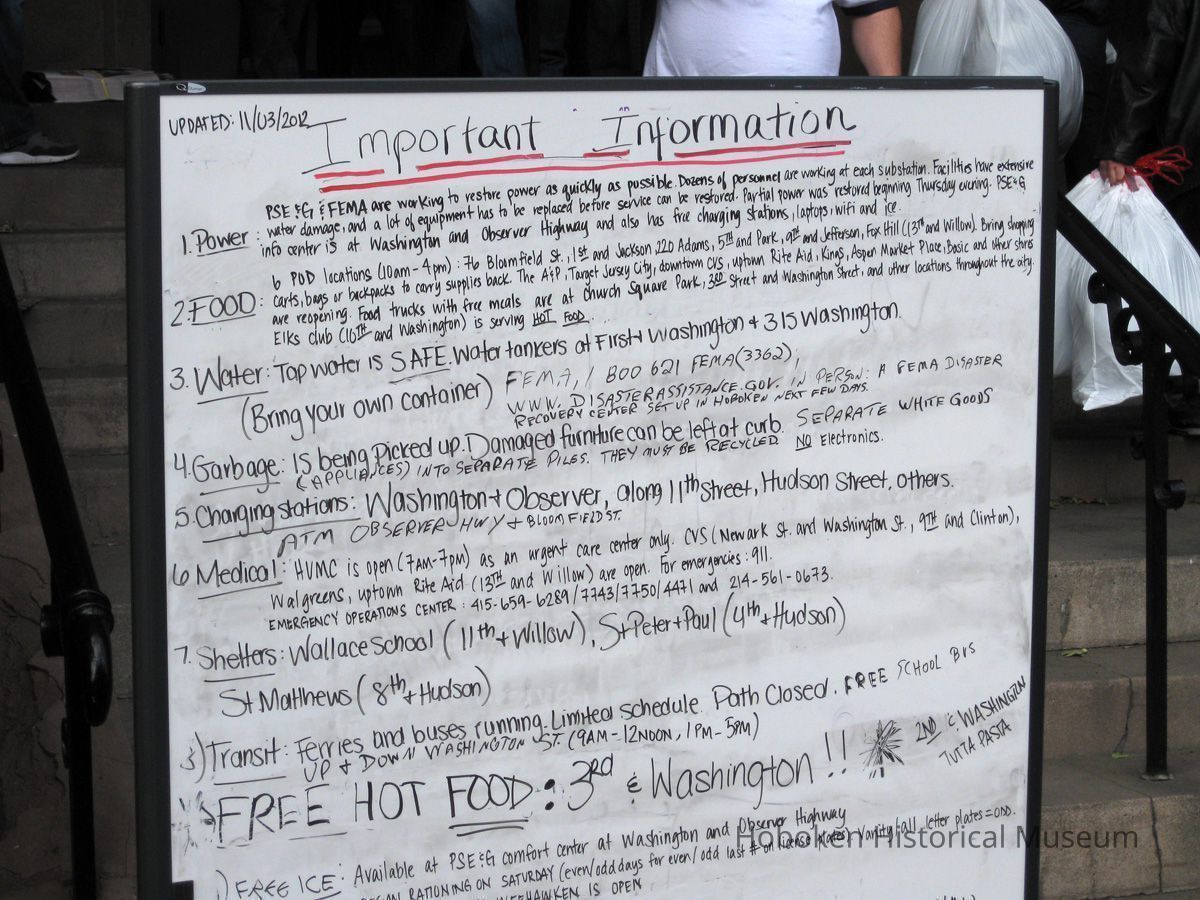 UPDATED: 11/03/2012
Important Information
PSE&G & FEMA are working to restore power as quickly as possible. Dozens of personnel are working at each substation. Facilities have extensive
1. Power: water damage, and a lot of equipment has to be replaced before service can be restored. Partial power was restored beginning Thursday evening. PSE&G
info center is at Washington and Observer Highway and also has free charging stations, laptops, wifi and ice.
6 POD locations (10am-4pm): 76 Bloomfield St., 1st and Jackson, 220 Adams, 5th and Park, 9th and Jefferson, Fox Hill (13th and Willow). Bring shopping
2. FOOD: carts, bags or backpacks to carry supplies back. The A&P, Target Jersey City, downtown CVS, uptown Rite Aid, Kings, Aspen Market Place, Basic and other stores
are reopening. Food trucks with free meals are at Church Square Park, 3rd Street and Washington Street, and other locations throughout the city.
Elks club (10th and Washington) is serving HOT FOOD.
3. Water: Tap water is SAFE. Water tankers at First + Washington + 315 Washington.
(Bring your own container) FEMA, 1 800 621 FEMA (3362),
WWW. DISASTERASSISTANCE.GOV. IN PERSON: A FEMA DISASTER
RECOVERY CENTER SET UP IN HOBOKEN NEXT FEW DAYS.
4. Garbage: Is being Picked up. Damaged furniture can be left at curb. SEPARATE WHITE GOODS
(APPLIANCES) INTO SEPARATE PILES. THEY MUST BE RECYCLED. NO Electronics.
5. Charging stations: Washington + Observer, along 11th street, Hudson Street, others.
ATM OBSERVER HWY + BLOOMFIELD ST.
6 Medical: HUMC is open (7am-7pm) as an urgent care center only. CVS (Newark St. and Washington St., 9TH and Clinton),
Walgreens, uptown Rite Aid (13TH and Willow) are open. For emergencies: 911.
EMERGENCY OPERATIONS CENTER: 415-659-6289/7743/7750/4471 and 214-561-0673.
7. Shelters: Wallace School (11th + Willow), St Peter + Paul (4th + Hudson)
St Matthews (8th + Hudson)
Transit: Ferries and buses running. Limited schedule. Path Closed. FREE SCHOOL BUS
UP + DOWN WASHINGTON ST. (9AM-12NOON, 1PM-5PM)
FREE HOT FOOD: 3rd & Washington!!
2ND & WASHINGTON
TUTTA PASTA
FREE ICE: Available at PSE&G comfort center at Washington and Observer Highway
RATIONING ON SATURDAY (even/odd days for even/odd last # on license plates) Vanity/all letter plates = ODD.
WEEHAWKEN IS OPEN
Hoboken Historical Museum